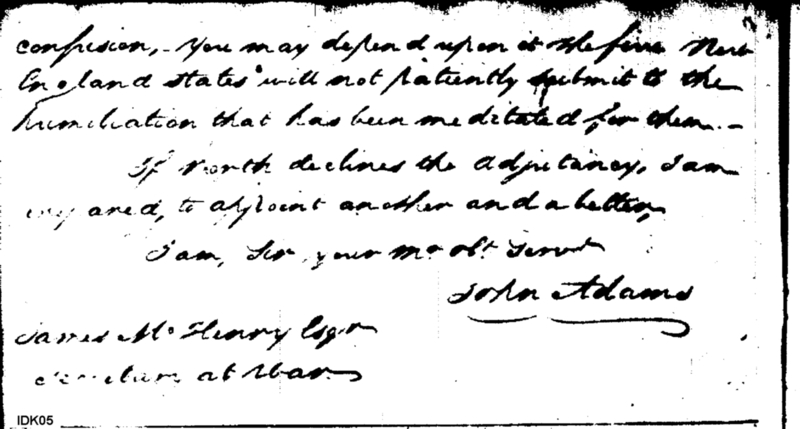 confusion,- You may depend upon it the five New
England states will not patiently submit to the
humiliation that has been meditated for them.-
If North declines the adjutancy, I am
prepared, to appoint another and a better,
I am, Sir, your Mo. obt. Servt
John Adams
James McHenry Esqr
Secretary at War
IDK05